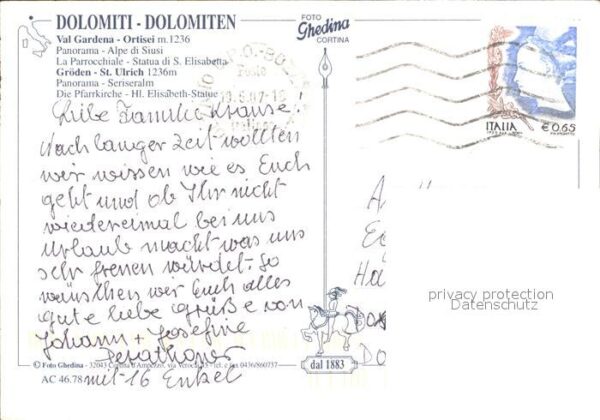 DOLOMITI - DOLOMITEN
Val Gardena - Ortisei m.1236
Panorama - Alpe di Siusi
La Parrocchiale - Statua di S. Elisabetta
Gröden - St. Ulrich 1236m
Panorama - Seriseralm
Die Pfarrkirche - Hl. Elisabeth-Statue
FOTO
Ghedina
CORTINA
ITALIA
€ 0,65
Liebe Familie Krause!
Nach langer Zeit wollten
wir wissen wie es Euch
geht und ob Ihr nicht
wiedereimal bei uns
Urlaub macht was uns
sehr freuen würdet. So
wünschen wir Euch alles
gute liebe grüße von
Johann + Josefine
Perathoner
mit 16 Enkel
privacy protection
Datenschutz
dal 1883
© Foto Ghedina - 32043 Cortina d'Ampezzo
0436/860737
AC 46.78